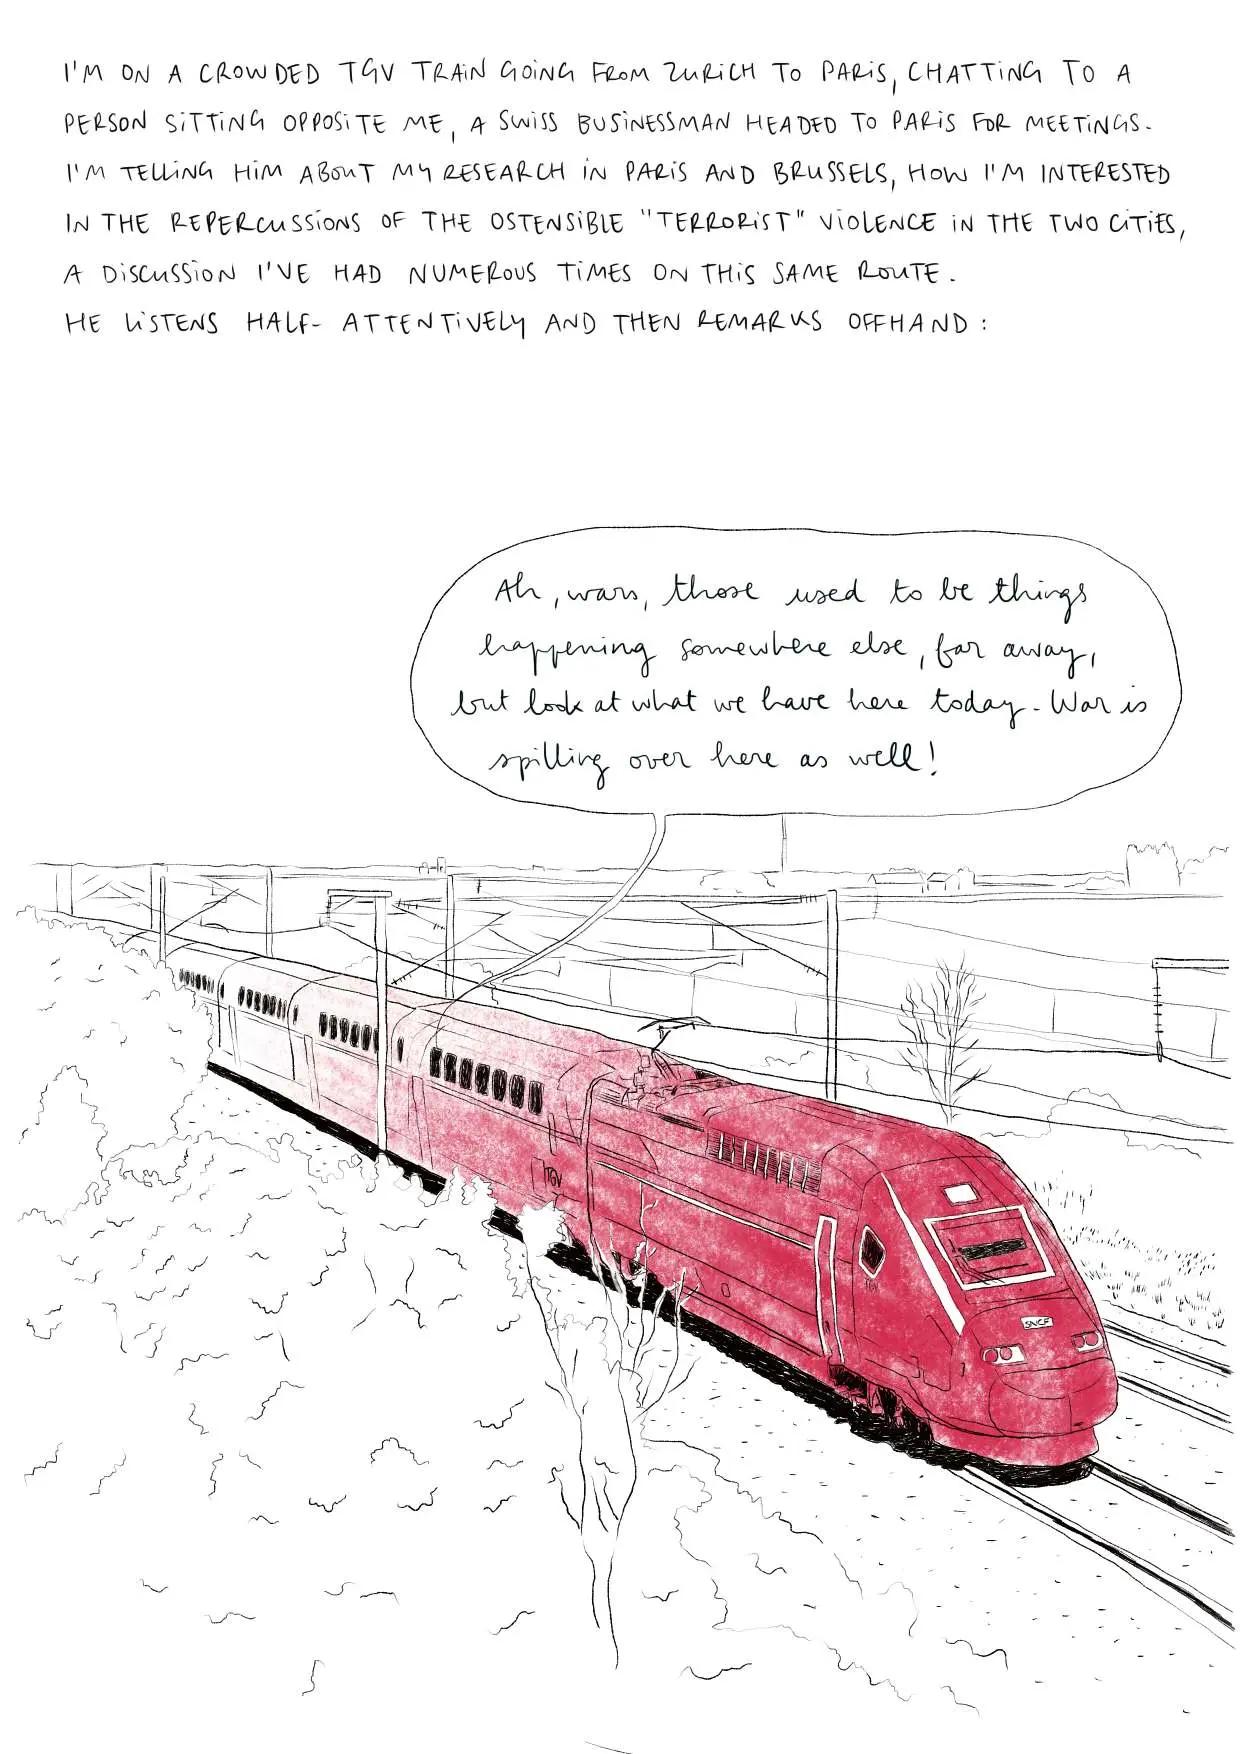 I'M ON A CROWDED TGV TRAIN GOING FROM ZURICH TO PARIS, CHATTING TO A
PERSON SITTING OPPOSITE ME, A SWISS BUSINESSMAN HEADED TO PARIS FOR MEETINGS.
I'M TELLING HIM ABOUT MY RESEARCH IN PARIS AND BRUSSELS, HOW I'M INTERESTED
IN THE REPERCUSSIONS OF THE OSTENSIBLE "TERRORIST" VIOLENCE IN THE TWO CITIES,
A DISCUSSION I'VE HAD NUMEROUS TIMES ON THIS SAME ROUTE.
HE LISTENS HALF-ATTENTIVELY AND THEN REMARKS OFFHAND:
Ah, wars, those used to be things
happening somewhere else, far away,
but look at what we have here today. War is
spilling over here as well!
TGV
SNCF